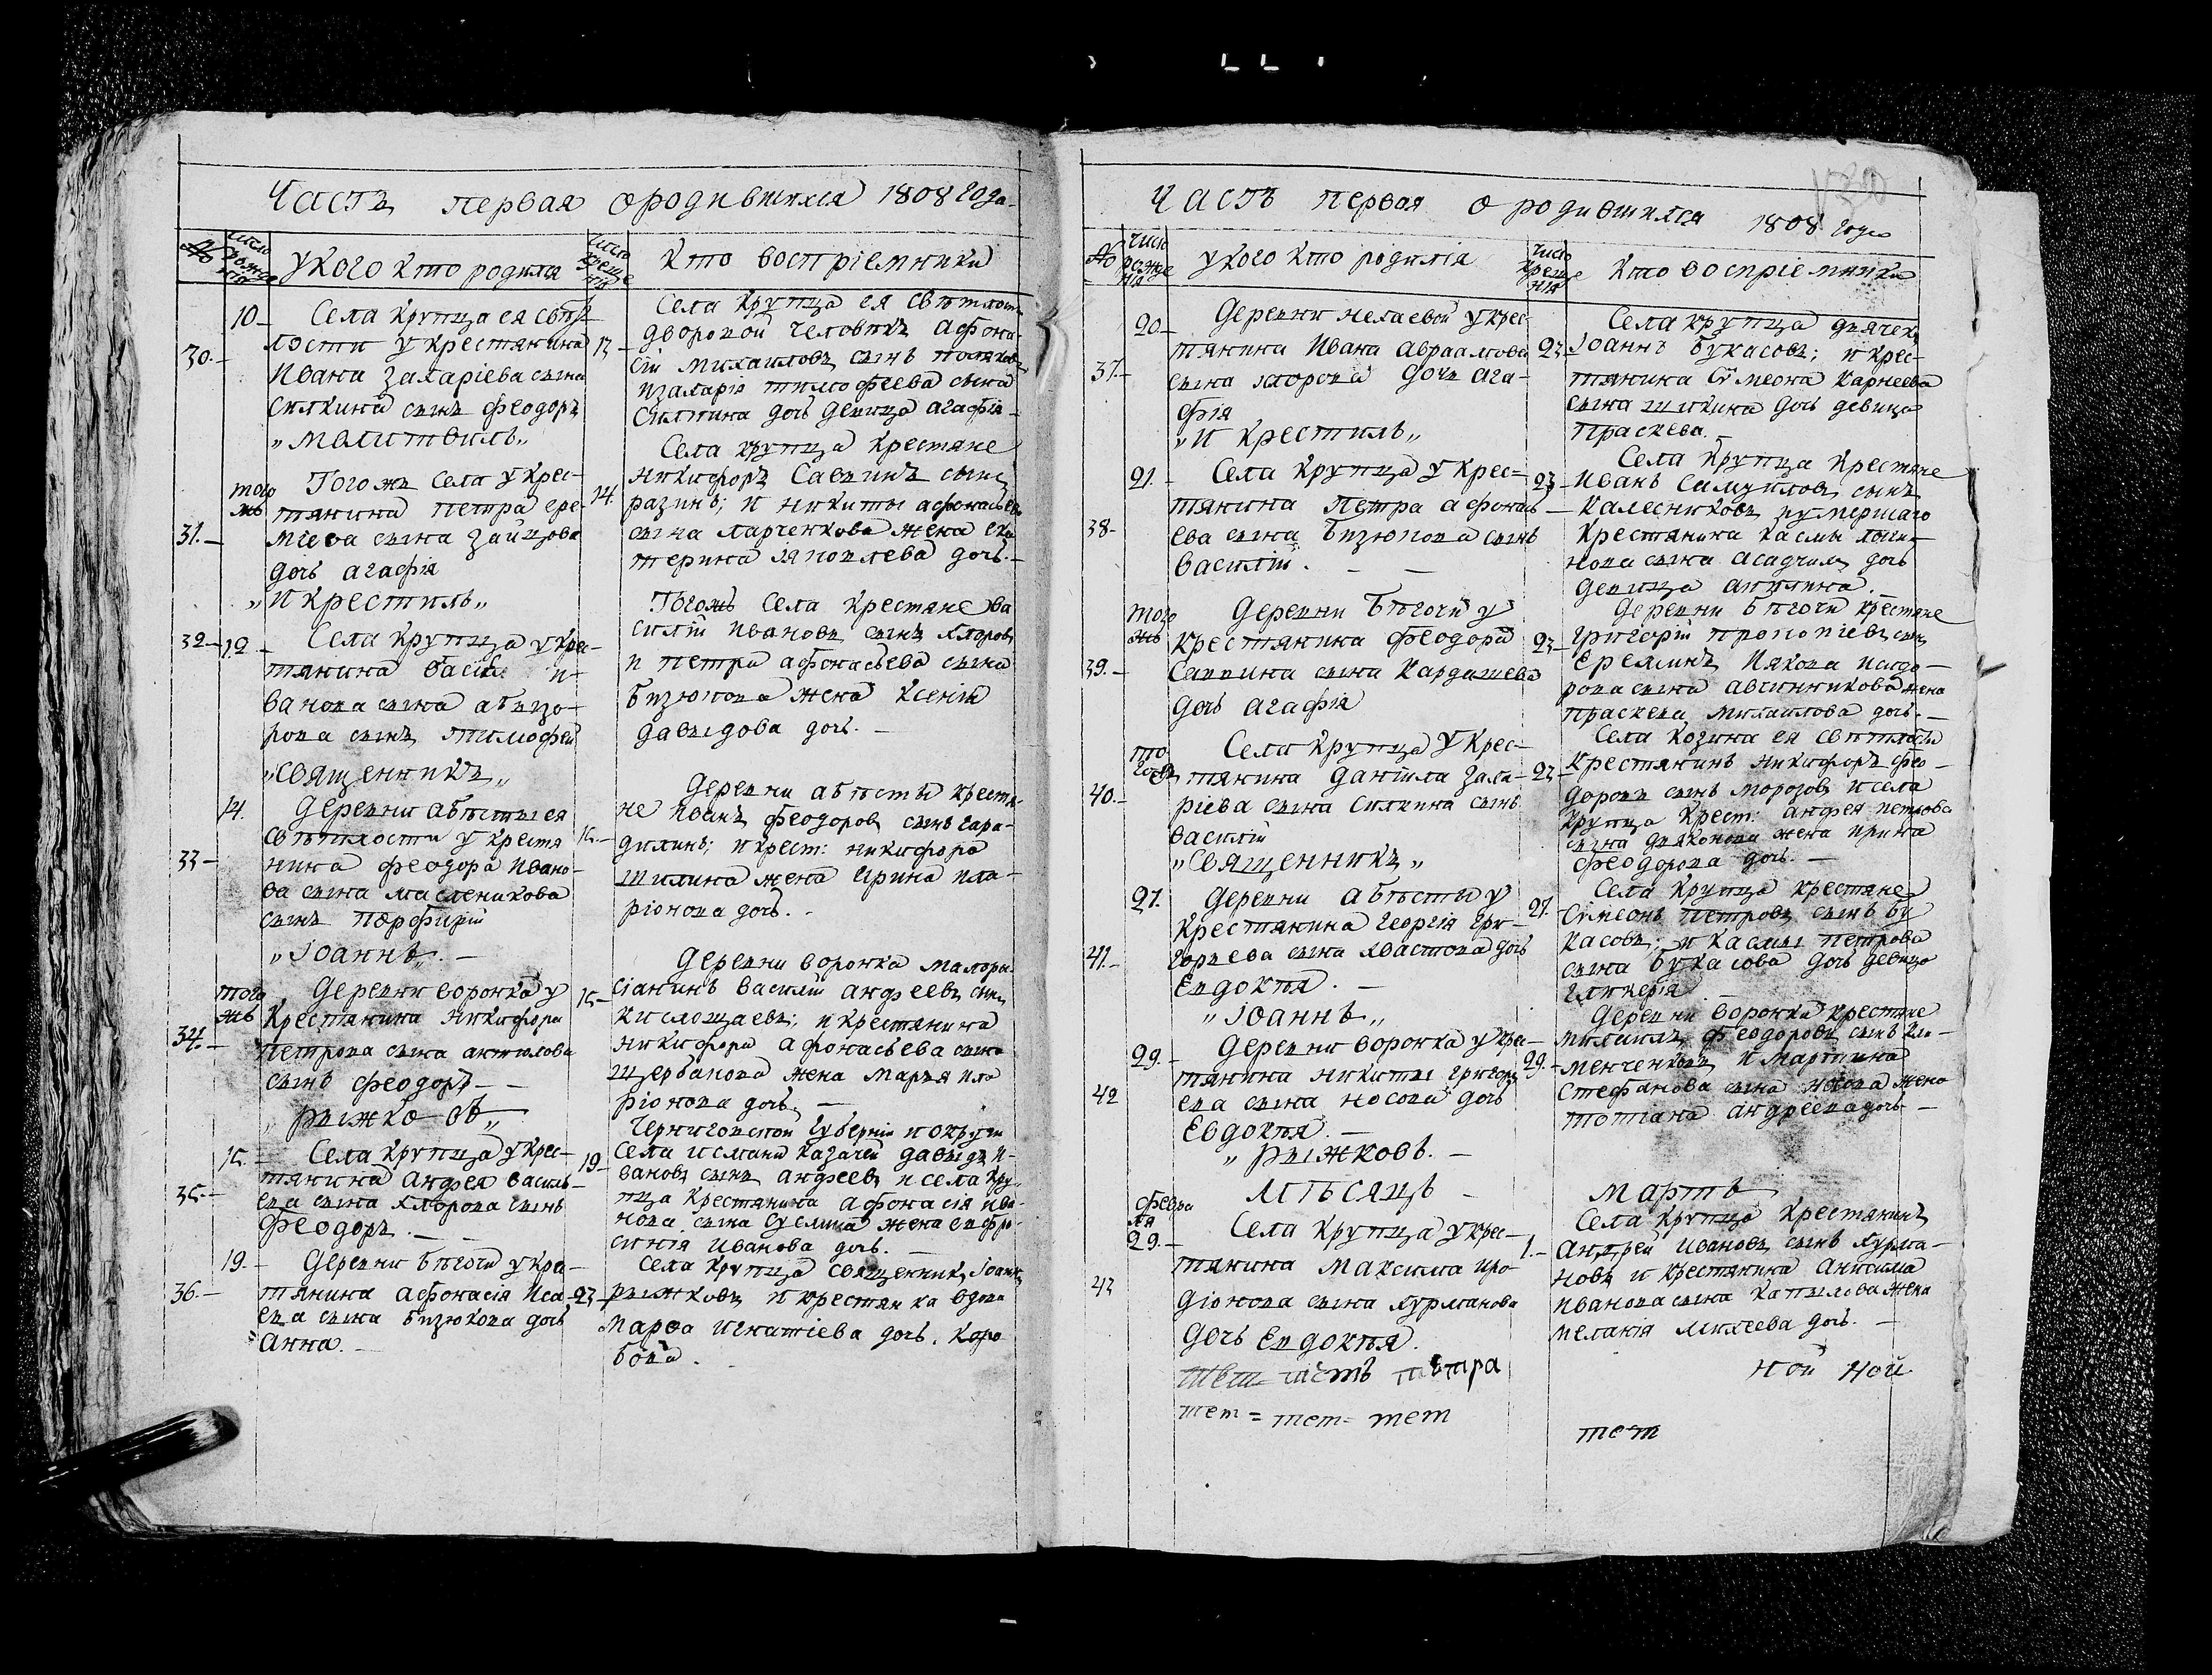 Часть первая о родившихся 1808 года
№
число рожде нія
у кого кто родился
число креще нія
кто воспріемники
30.
10
Села крупца ея свѣт
лости у крестянина
Ивана Захаріева сына
Силкина сынъ феодоръ
„молитвилъ„
13
Села крупца ея свѣтлости
дворовой человѣкъ афона
сій Михаиловъ сынъ поляков
и Захарія тимофеева сына
Силкина дочь девица агафія
31.
того жъ
Тогожъ села у крес-
тянина петра ере-
міева сына зайцова
дочь агафія
„И крестилъ„
14.
Села крупца крестяне
никифоръ Саввинъ сынъ
разинъ; и никиты афонасьев
сына харченкова жена ека
терина яковлева дочь.
32
12
Села крупца у крес-
тянина васи и-
ванова сына
рова сынъ тимофей
„Священникъ„
Тогожъ села крестяне ва
силій Ивановъ сынъ хлоровъ
и петра афонасьева сына
бизюкова жена ксенія
давыдова дочь.
33
14.
Деревни абѣсты ея
свѣтлости у крестя
нина феодора Ивано-
ва сына масленикова
сынъ порфирій
„Іоаннъ„.
15.
Деревни абѣсты крестя-
не Иванъ феодоровъ сынъ гара-
дилинъ; и крест: никифора
шилина жена Ирина ила-
ріонова дочь.
34.
того жъ
Деревни воронка у
крестянина никифора
петрова сына
сынъ феодоръ
„рыжковъ„
15
Деревни воронка малоро
сіанинъ василій андреевъ сынъ
кислощаевъ; и крестянина
никифора афонасьева сына
щербакова жена марья ила
ріонова дочь.
35.
15.
Села крупца у крес-
тянина андрея василь-
ева сына хлорова сынъ
феодоръ.
19
Черниговской губерніи и округи
села исмани казачей давыдъ и-
вановъ сынъ андреевъ и села кру-
пца крестянина афонасія ива-
нова сына суслина жена евфро-
синія Иванова дочь.
36.
19.
Деревни бѣгочи у крес-
тянина афонасія Иса-
ева сына бизюкова дочь
Анна.
23
Села крупца священникъ Іоаннъ
рыжковъ и крестянка вдова
марѳа игнатіева дочь коро
бова.
Часть первая о родившихся 1808 года
№
число рожде нія
у кого кто родился
число креще нія
кто воспріемники
37.
20
Деревни нелаевой у крес-
тянина Ивана Авраамова
сына хлорова дочь ага-
фія
„И крестилъ„
23
Села крупца дьячекъ
Іоаннъ букасовъ; и крес-
тянина Сѵмеона карнеева
сына шикина дочь девица
праскева.
38
21.
Села крупца у крес-
тянина петра афонась-
ева сына бизюкова сынъ
василій.
23
Села крупца крестяне
Иванъ Самуиловъ сынъ
калесниковъ и умершаго
крестянина касмы логи-
нова сына асадчих дочь
девица акилина.
39.
того жъ
Деревни бѣгочи у
крестянина феодора
Саввина сына кардашева
дочь агафія
23
Деревни бѣгочи крестяне
григорій прокопіевъ сынъ
еремлинъ иякова исидо-
рова сына авчинникова жена
праскева михаилова дочь.
40.
Села крупца у крес-
тянина даніила заха-
ріева сына Силкина сынъ
василій
„Священникъ„
23
Села козина ея свѣтлости
крестянинъ никифоръ фео-
доровъ сынъ морозовъ и села
крупца крест: андрея петрова
сына дьяконова жена ирина
феодорова дочь.
41.
27.
Деревни абѣсты у
крестянина георгія гри-
горьева сына хвастова дочь
Евдокія.
„Іоаннъ„
27.
Села крупца крестяне
Сѵмеонъ петровъ сынъ бу
касовъ; и касмы петрова
сына букасова дочь девица
гликерія.
42
29.
Деревни воронка у крес-
тянина никиты григорь
ева сына носова дочь
Евдокія.
„рыжковъ.
29.
Деревни воронка крестяне
михаилъ феодоровъ сынъ кли-
менченковъ и мартина
Стефанова сына носова жена
тотіана андреева дочь
Мѣсяцъ
мартъ
43
февра ля 29.
Села крупца у крес-
тянина максима иро-
діонова сына курманова
дочь Евдокія.
1.
Села крупца крестянинъ
андрей Ивановъ сынъ курма-
новъ и крестянина анисима
Иванова сына капылова жена
меланія михеева дочь.
ной ной
тет = тет = тет
тет